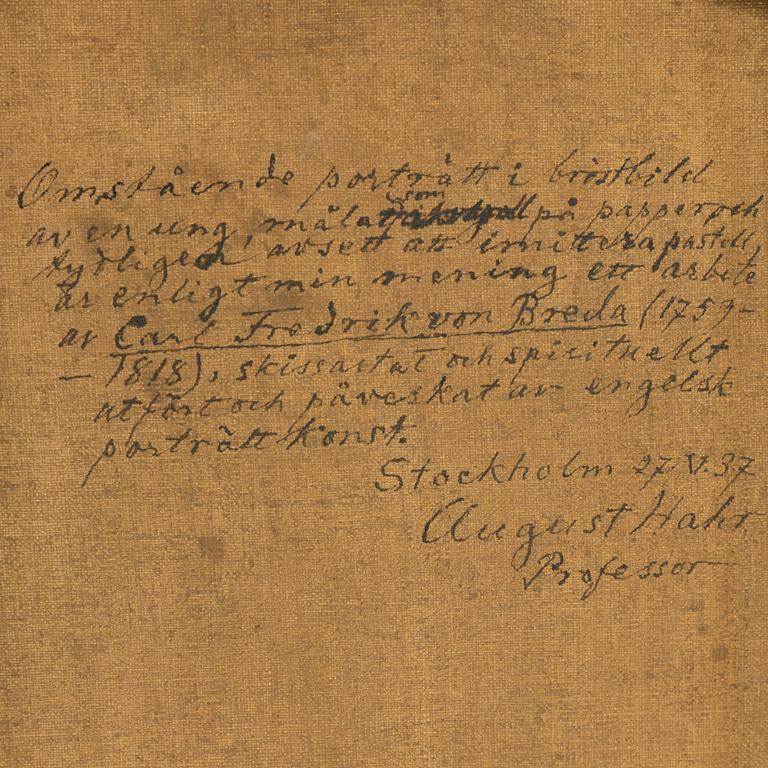 Omstående porträtt i bröstbild
av en ung, målat som på papper och
tydligen avsett att imitera pastell,
är enligt min mening ett arbete
av Carl Fredrik von Breda (1759-
- 1818), skissartat och spirituellt
utfört och påverkat av engelsk
porträttkonst.
Stockholm 27.V.37
August Hahr
Professor